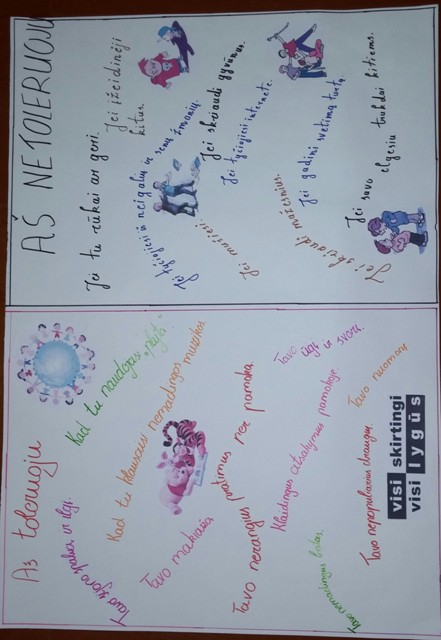 Aš toleruoju
Kad tu naudojasi
Tavo šeimo
Kad tu klausaisi nemadingos muzikos
Tavo makiažą
Tavo nerangius judesius per pamoką
Tavo ūgį ir svorį.
Klaidingus atsakymus pamokoje.
Tavo nuomonę
Tavo nepopuliarius draugus.
Tavo nemadingus batus.
visi skirtingi
visi lygūs
AŠ NETOLERUOJU
Jei tu rūkai ar geri.
Jei įžeidinėji
kitus.
Jei tyčiojiesi iš neįgalių ir senų žmonių.
Jei skriaudi gyvūnus.
Jei tyčiojiesi internete.
Jei mušiesi.
Jei gadini svetimą turtą.
Jei skriaudi mažesnius.
Jei savo elgesiu trukdai kitiems.